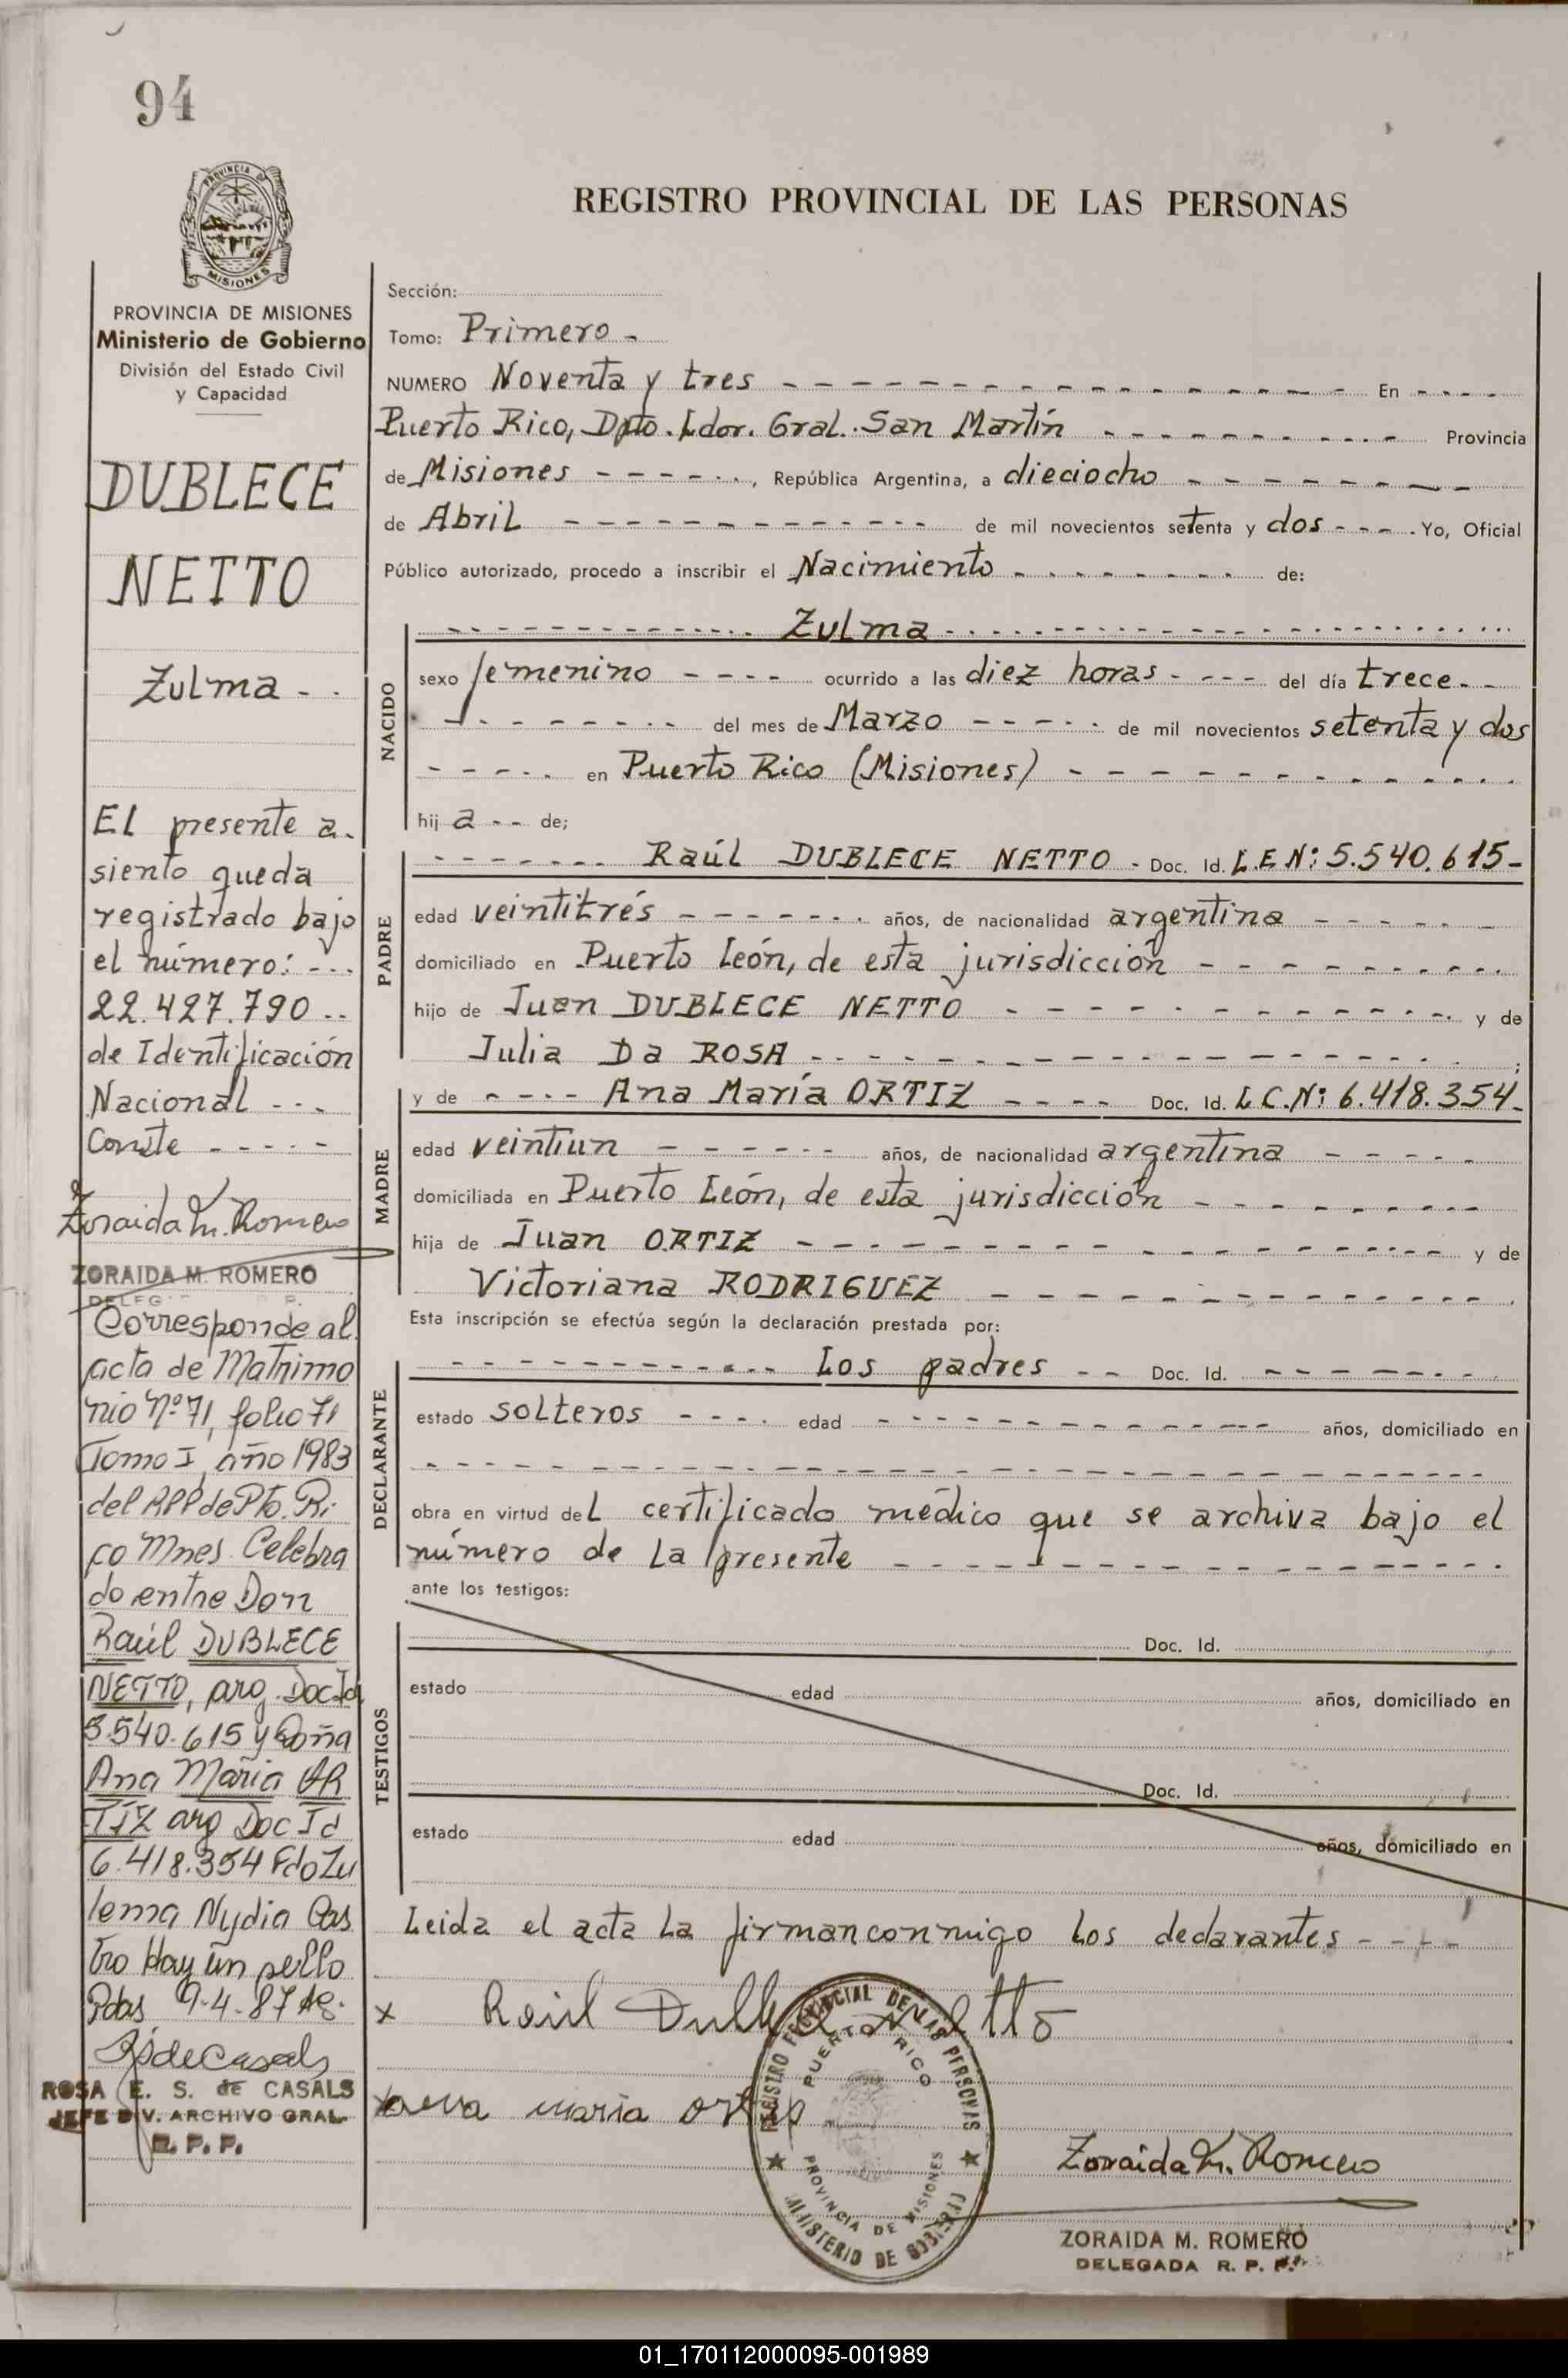 94
PROVINCIA DE
MISIONES
PROVINCIA DE MISIONES
Ministerio de Gobierno
División del Estado Civil
y Capacidad
DUBLECE
NETTO
Zulma - -
El presente a-
siento queda
registrado bajo
el número: - - -
22.427.790 --
de Identificación
Nacional - - -
Conste - - - - -
Zoraida M. Romero
ZORAIDA M. ROMERO
Corresponde al
acta de Matrimo
nio Nº 71, folio 71
Tomo I, año 1983
del RPP de Pto. Ri-
co Mnes. Celebra
do entre Don
Raúl DUBLECE
NETTO, arg. Doc Id
5.540.615 y Doña
Ana María OR
TIZ arg Doc Id
6.418.354 Fdo Zu
lema Nydia Cas
tro Hay un sello
Pdas 9-4-87
ROSA E. S. de CASALS
JEFE DIV. ARCHIVO GRAL.
R. P. P.
REGISTRO PROVINCIAL DE LAS PERSONAS
Sección:
Tomo: Primero -
NUMERO Noventa y tres - - - - En - - - -
Puerto Rico, Dpto. Ldor. Gral. San Martín - - - - Provincia
de Misiones - - - -, República Argentina, a dieciocho - - - -
de Abril - - - - de mil novecientos setenta y dos - - - -. Yo, Oficial
Público autorizado, procedo a inscribir el Nacimiento - - - - de:
- - - - Zulma - - - -
NACIDO
sexo femenino - - - - ocurrido a las diez horas - - - - del día trece - -
- - - - del mes de Marzo - - - - de mil novecientos setenta y dos
- - - - en Puerto Rico (Misiones) - - - -
hij a - - de;
PADRE
- - - - Raúl DUBLECE NETTO - Doc. Id. L.E.Nº: 5.540.615-
edad veintitrés - - - - años, de nacionalidad argentina - - - -
domiciliado en Puerto León, de esta jurisdicción - - - -
hijo de Juan DUBLECE NETTO - - - - y de
Julia Da ROSA - - - - ;
MADRE
y de - - - - Ana María ORTIZ - - - - Doc. Id. L.C.Nº: 6.418.354-
edad veintiun - - - - años, de nacionalidad argentina - - - -
domiciliada en Puerto León, de esta jurisdicción - - - -
hija de Juan ORTIZ - - - - y de
Victoriana RODRIGUEZ - - - - .
Esta inscripción se efectúa según la declaración prestada por:
DECLARANTE
- - - - Los padres - - Doc. Id. - - - -
estado solteros - - - - edad - - - - años, domiciliado en
- - - -
obra en virtud de L certificado médico que se archiva bajo el
número de La presente - - - -
ante los testigos:
TESTIGOS
Doc. Id.
estado edad años, domiciliado en
Doc. Id.
estado edad años, domiciliado en
Leida el acta La firman conmigo Los declarantes - - - -
x Raúl Dublece Netto
x ana maria ortiz
REGISTRO PROVINCIAL DE LAS PERSONAS
PUERTO RICO
PROVINCIA DE MISIONES
MINISTERIO DE GOBIERNO
Zoraida M. Romero
ZORAIDA M. ROMERO
DELEGADA R. P. P.
01_170112000095-001989